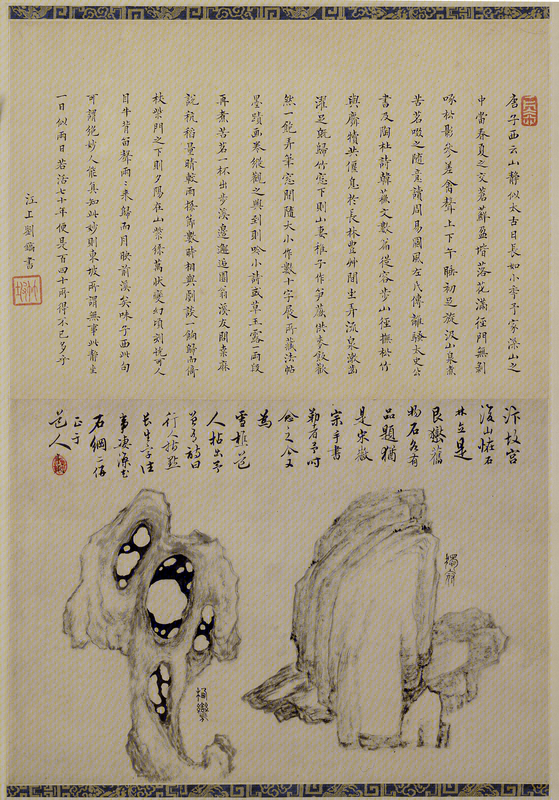 唐子西云山靜似太古日長如小年予家深山之
中當春夏之交蒼蘚盈堦落花滿徑門無剝
啄松影參差禽聲上下午睡初足旋汲山泉煮
苦茗啜之隨意讀周易國風左氏傳離騷太史公
書及陶杜詩韓蘇文數篇從容步山徑撫松竹
與麛犢共偃息於長林豐艸間坐弄流泉漱齒
濯足旣歸竹窓下則山妻稚子作笋蕨供麥飯歡
然一飽弄筆窓間隨大小作數十字展所藏法帖
墨蹟畫卷縱觀之興到則吟小詩或草玉露一兩段
再煮苦茗一杯出步溪邊邂逅園翁溪友問桑麻
說秔稻量晴較雨探節數時相與劇談一餉歸而倚
杖柴門之下則夕陽在山紫綠萬狀變幻頃刻恍可人
目牛背笛聲兩兩來歸而月映前溪矣味子西此句
可謂絕妙人能真知此妙則東坡所謂無事此靜坐
一日似兩日若活七十年便是百四十所得不已多乎
江上劉書
汴故宮
後山恠石
林立是
艮嶽舊
物石各有
品題猶
是宋徽
宗手書
勒者予時
之今又
為
雪
人拈出予
有詩曰
行人指點
長生字往
事淒涼
石綱二
正于
人